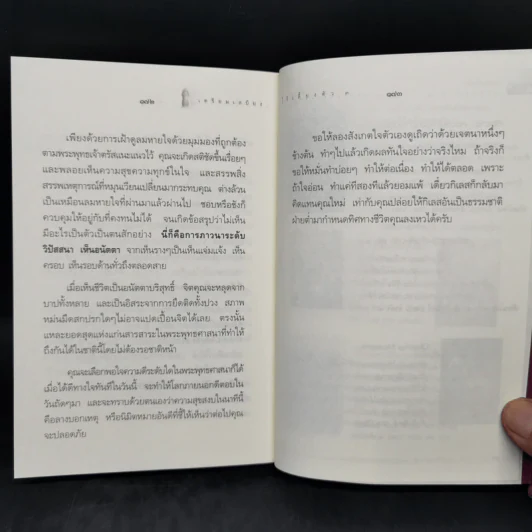 ๑๗๒
เตรียมเสบียง
เพียงด้วยการเฝ้าดูลมหายใจด้วยมุมมองที่ถูกต้อง
ตามพระพุทธเจ้าตรัสแนะแนวไว้ คุณจะเกิดสติชัดขึ้นเรื่อยๆ
และพลอยเห็นความสุขความทุกข์ในใจ และสรรพสิ่ง
สรรพเหตุการณ์ที่หมุนเวียนเปลี่ยนมากระทบคุณ ต่างล้วน
เป็นเหมือนลมหายใจที่ผ่านมาแล้วผ่านไป ชอบหรือชังก็
ควบคุมให้อยู่กับที่คงทนไม่ได้ จนเกิดข้อสรุปว่าไม่เห็น
มีอะไรเป็นตัวเป็นตนสักอย่าง นี่ก็คือการภาวนาระดับ
วิปัสสนา เห็นอนัตตา จากเห็นรางๆเป็นเห็นแจ่มแจ้ง เห็น
ครอบ เห็นรอบด้านทั่วถึงตลอดสาย
เมื่อเห็นชีวิตเป็นอนัตตาบริสุทธิ์ จิตคุณจะหลุดจาก
บาปทั้งหลาย และเป็นอิสระจากการยึดติดทั้งปวง สภาพ
หม่นมืดสกปรกใดๆไม่อาจแปดเปื้อนจิตได้เลย ตรงนั้น
แหละยอดสุดแห่งแก่นสารสาระในพระพุทธศาสนาที่ทำให้
ถึงกันได้ในชาตินี้โดยไม่ต้องรอชาติหน้า
คุณจะเลือกพอใจความดีระดับใดในพระพุทธศาสนาก็ได้
เมื่อได้ดีทางใจทันทีในวันนี้ จะทำให้โลกภายนอกดีตอบใน
วันถัดๆมา และจะทราบด้วยตนเองว่าความสุขสงบในนาทีนี้
คือลางบอกเหตุ หรือนิมิตหมายอันดีที่ชี้ให้เห็นว่าต่อไปคุณ
จะปลอดภัย
๑๗๓
ขอให้ลองสังเกตใจตัวเองดูเถิดว่าด้วยเจตนาหนึ่งๆ
ข้างต้น ทำๆไปแล้วเกิดผลทันใจอย่างว่าจริงไหม ถ้าจริงก็
ขอให้หมั่นทำบ่อยๆ ทำให้ต่อเนื่อง ทำให้ได้ตลอด เพราะ
ถ้าใจอ่อน ทำแค่ทีสองทีแล้วยอมแพ้ เดี๋ยวกิเลสก็กลับมา
คิดแทนคุณใหม่ เท่ากับคุณปล่อยให้กิเลสอันเป็นธรรมชาติ
ฝ่ายต่ำมากำหนดทิศทางชีวิตคุณลงเหวได้ครับ